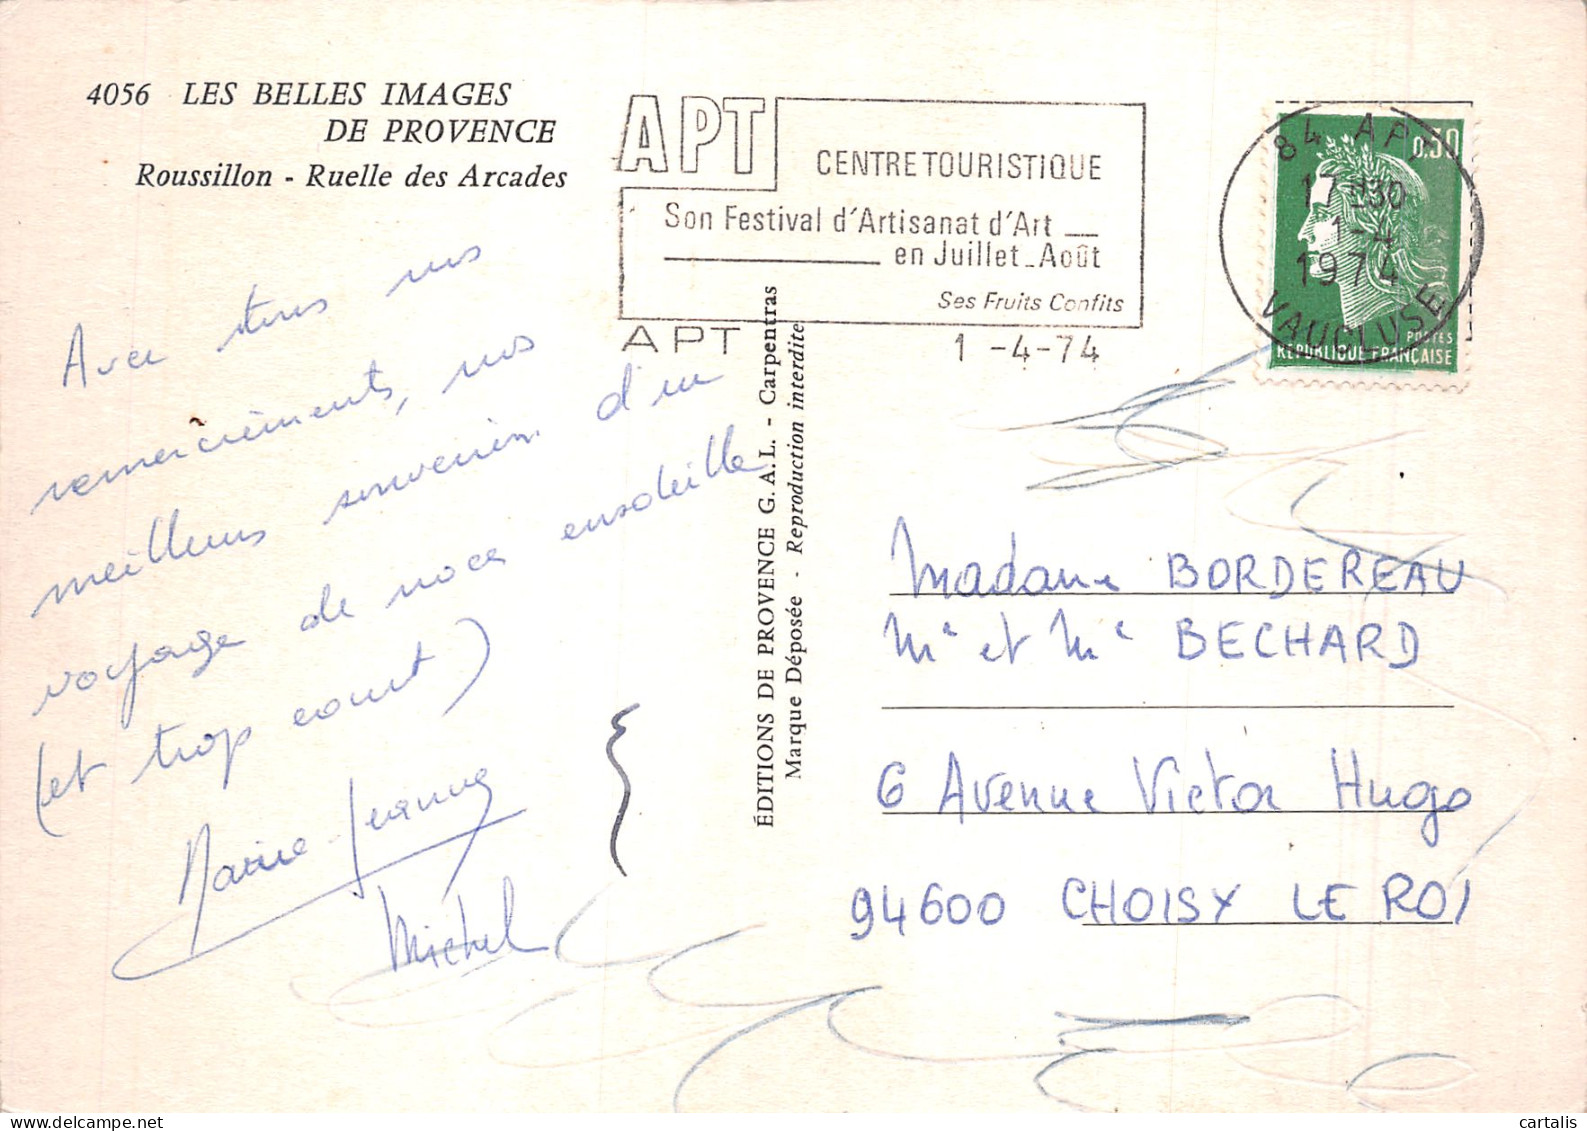 4056 LES BELLES IMAGES
DE PROVENCE
Roussillon - Ruelle des Arcades
APT
CENTRE TOURISTIQUE
Son Festival d'Artisanat d'Art
en Juillet_Août
Ses Fruits Confits
APT 1 -4-74
84 APT
17 H30
1-4
1974
VAUCLUSE
0,50
POSTES
RÉPUBLIQUE FRANÇAISE
Avec tous nos
remerciements, nos
meilleurs souvenirs d'un
voyage de noces ensoleillé
(et trop court)
Marie-Jeanne
Michel
ÉDITIONS DE PROVENCE G.A.L. - Carpentras
Marque Déposée - Reproduction interdite
Madame BORDEREAU
Mr et Me BECHARD
6 Avenue Victor Hugo
94600 CHOISY LE ROI
cartalis